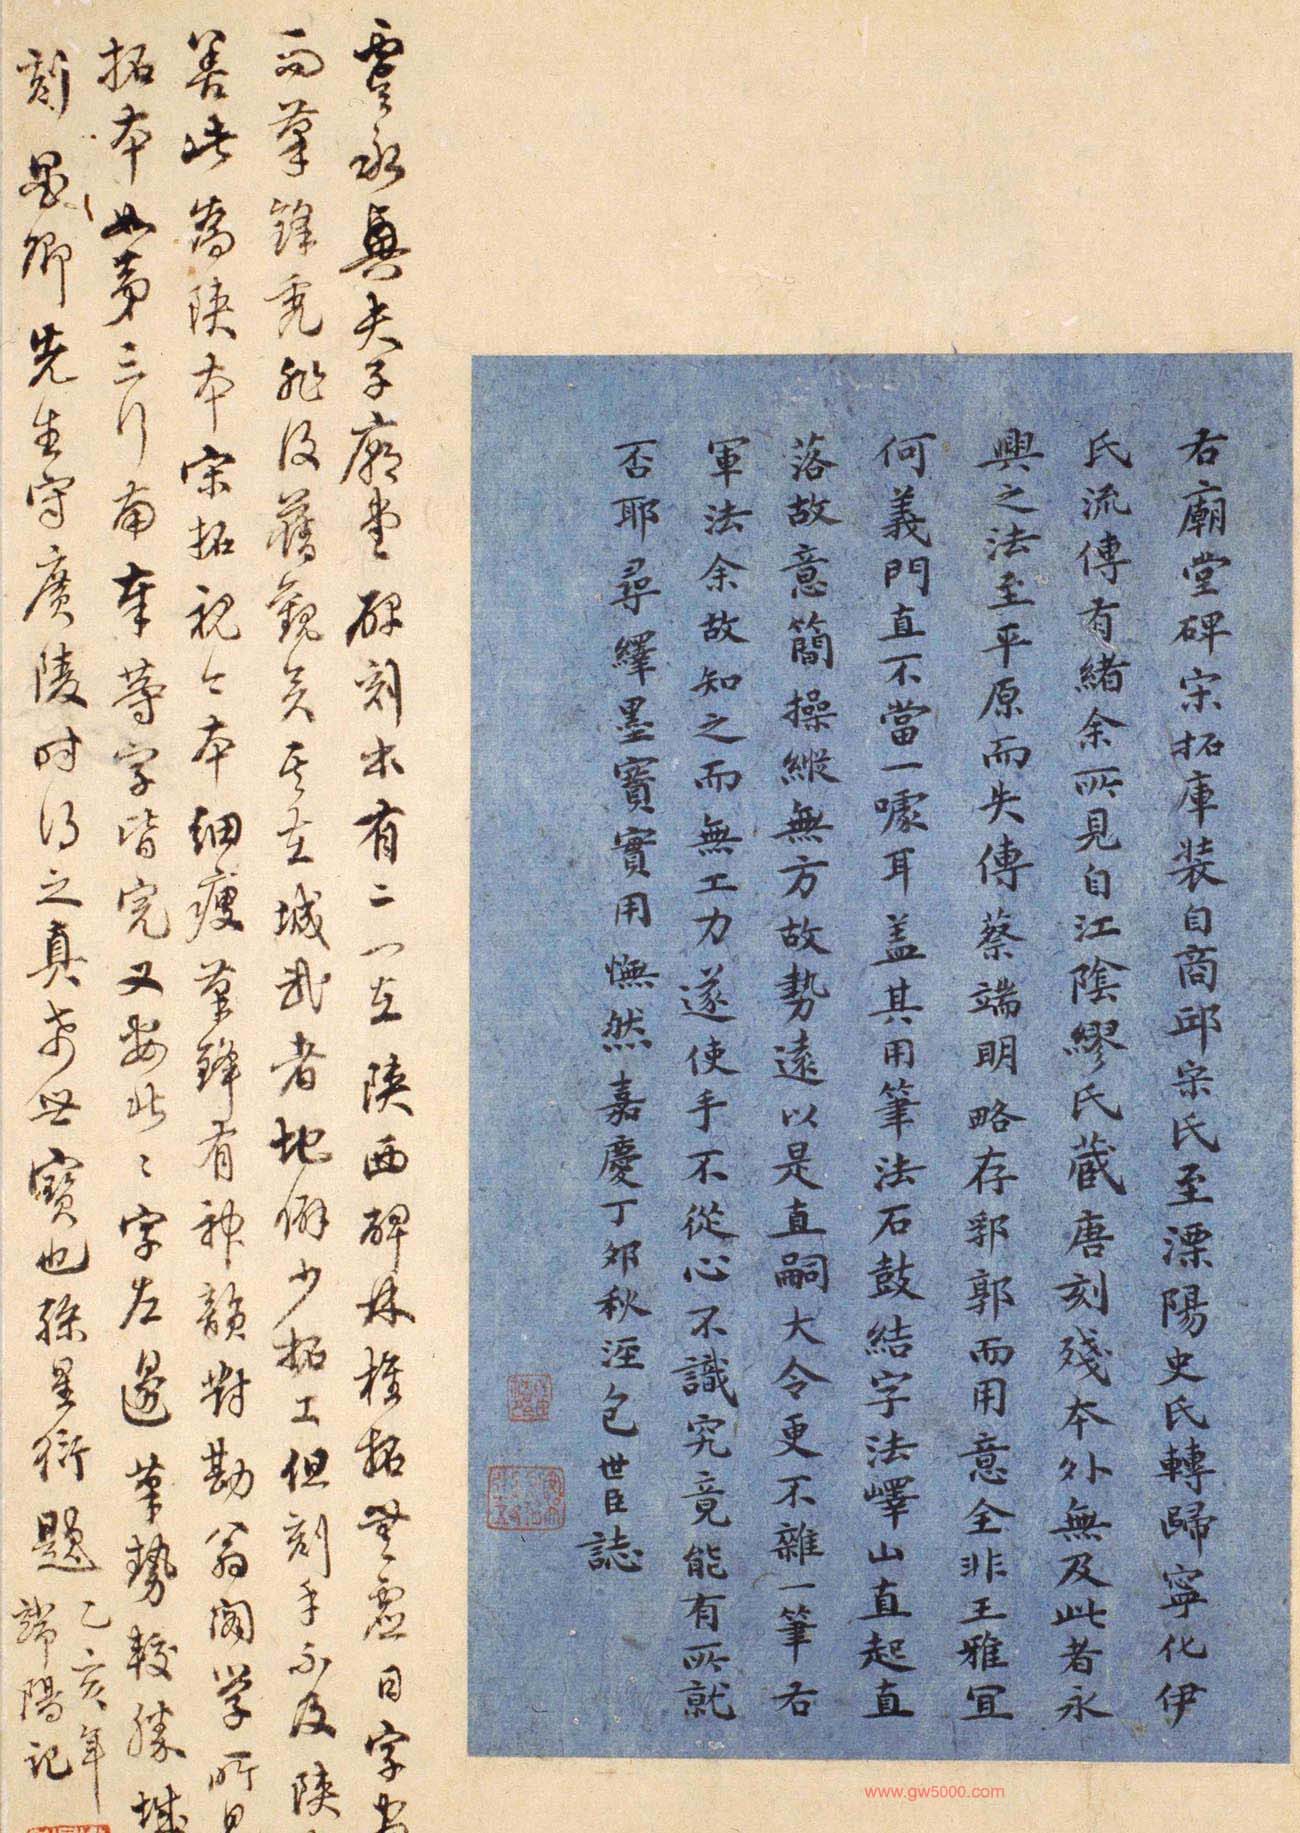 右廟堂碑宋拓庫裝自商邱宋氏至溧陽史氏轉歸寧化伊
氏流傳有緒余所見自江陰繆氏藏唐刻殘本外無及此者永
興之法至平原而失傳蔡端明略存郛郭而用意全非王雅宜
何義門直不當一噱耳蓋其用筆法石鼓結字法嶧山直起直
落故意簡操縱無方故勢遠以是直嗣大令更不雜一筆右
軍法余故知之而無工力遂使手不從心不識究竟能有所就
否耶尋繹墨寶實用憮然嘉慶丁卯秋涇包世臣誌
虞永興夫子廟堂碑刻本有二一在陝西碑林椎拓無虛日字
而筆鋒禿非復舊觀矣其在城武者地僻少拓工但刻手不及陝
善此為陝本宋拓視今本細瘦筆鋒有神韻對勘翁閣學所見
拓本如第三行南奉等字皆完又安此二字左邊筆勢較勝城
刻墨卿先生守廣陵時得之真希世寶也孫星衍題
乙亥年
端陽記
www.gw5000.com